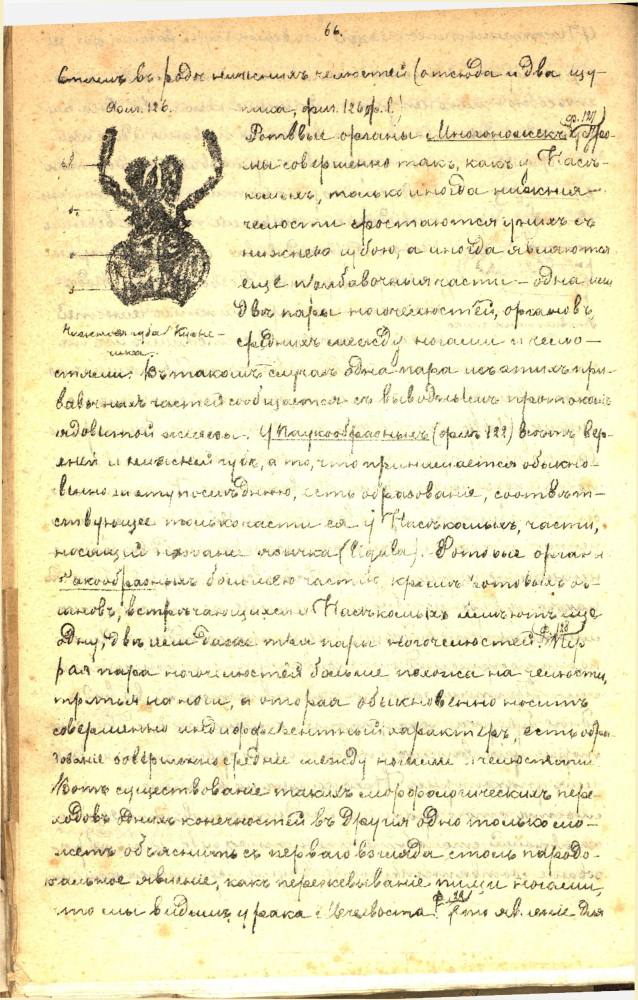 66.
вторыхъ въ родѣ нижнихъ челюстей (отсюда и два щу-
Фиг. 126.
пика, фиг. 126 фр. 1.)
Ротовые органы Многоножекъ
мы совершенно такъ, какъ у Насѣ-
комыхъ, только иногда нижнія
челюсти сростаются у нихъ съ
нижнею губою, а иногда являются
еще прибавочныя части – одна или
двѣ пары ногочелюстей, органовъ,
Нижняя губа Кузне-
чика.
среднихъ между ногами и челю-
стями. Въ такомъ случаѣ одна пара изъ этихъ при-
бавочныхъ частей сообщается съ выводнымъ протокомъ
ядовитой железы. У Паукообразныхъ (фиг. 122) нѣтъ вер-
хней и нижней губы, а то, что принимается обыкно-
венно за эту послѣднюю, есть образованіе, соотвѣт-
ствующее только части ея у Насѣкомыхъ, части,
носящей названіе язычка (ligula). Ротовые органы
Ракообразныхъ большею частію, кромѣ ротовыхъ ор-
гановъ, встрѣчающихся у Насѣкомыхъ имѣютъ еще
одну, двѣ или даже три пары ногочелюстей.
рая пара ногочелюстей больше похожа на челюсти,
третья на ноги, а вторая обыкновенно носитъ
совершенно индифферентный характеръ, есть обра-
зованіе совершенно среднее между ногами и челюстями
Вотъ существованіе такихъ морфологическихъ пере-
ходовъ однихъ конечностей въ другія одно только мо-
жетъ объяснить съ перваго взгляда столь парадо-
ксальное явленіе, какъ пережевываніе пищи ногами,
что мы видимъ у рака Мечехвоста. Это явленіе для